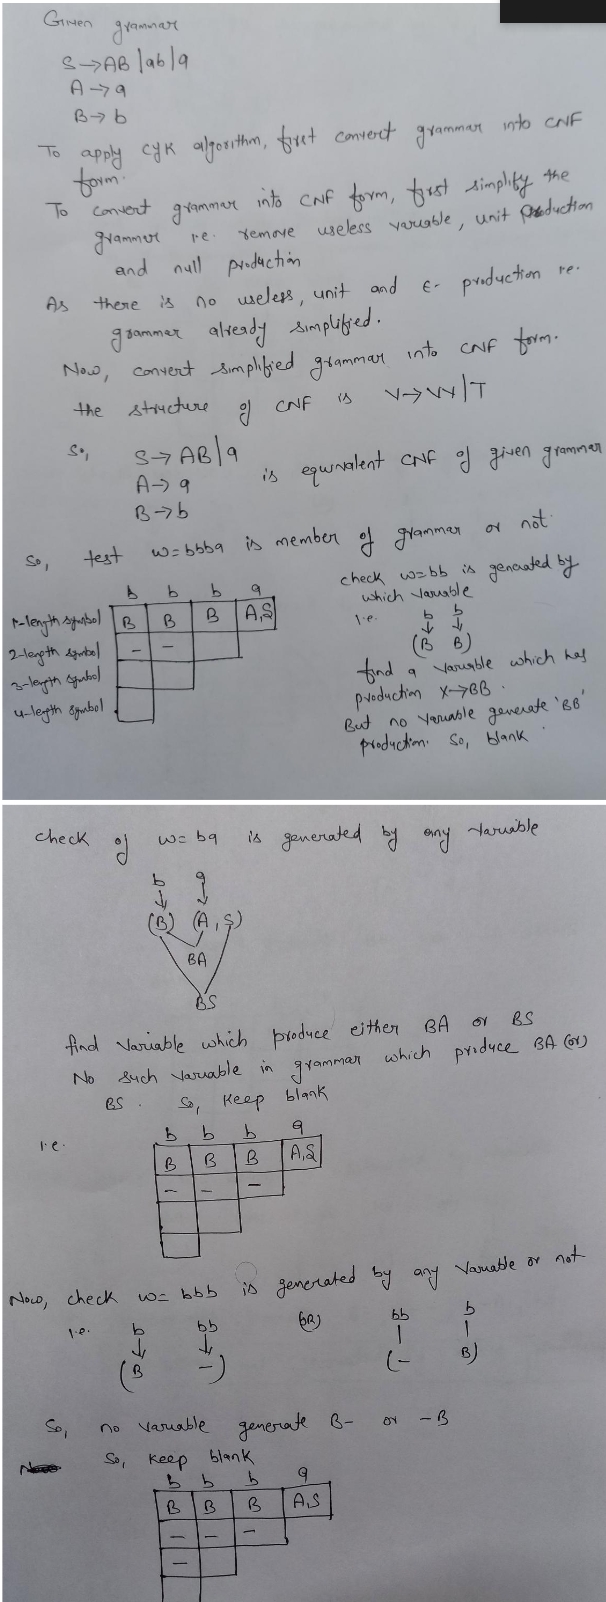 Given grammar
S→AB|ab|a
A→a
B→b
To apply CYK algorithm, first convert grammar into CNF
form.
To convert grammar into CNF form, first simplify the
grammer i.e. remove useless variable, unit production
and null production
As there is no useless, unit and ε- production i.e.
grammar already simplified.
Now, convert simplified grammar into CNF form.
the structure of CNF is V→VV|T
So, S→AB|a
A→a
B→b
is equivalent CNF of given grammar
So, test w=bbba is member of grammar or not.
b b b a
1-length symbol B B B A,S
2-length symbol - -
3-length symbol
4-length symbol
check w=bb is generated by
which variable
i.e. b b
↓ ↓
(B B)
find a variable which has
production X→BB.
But no variable generate 'BB'
production. So, blank.
check of w=ba is generated by any variable
b a
↓ ↓
(B) (A,S)
BA
BS
find variable which produce either BA or BS
No such variable in grammar which produce BA (or)
BS. So, Keep blank
i.e. b b b a
B B B A,S
- - -
Now, check w=bbb is generated by any variable or not
i.e. b bb (OR) bb b
↓ ↓ | |
(B -) (- B)
So, no variable generate B- or -B
So, keep blank
b b b a
B B B A,S
- - -
-